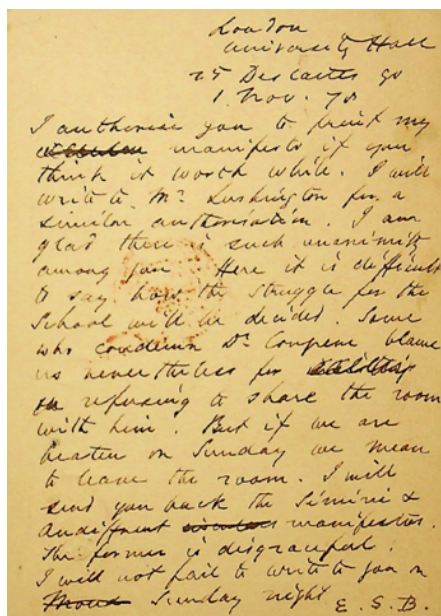 London
University Hall
25 Descartes 90
1 Nov. 78
I authorise you to print my
manifesto if you
think it worth while. I will
write to Mr. Lushington for a
similar authorisation. I am
glad there is such unanimity
among you Here it is difficult
to say how the struggle for the
School will be decided. Some
who condemn Dr. Congreve blame
us nevertheless for
refusing to share the room
with him. But if we are
beaten on Sunday we mean
to leave the room. I will
send you back the Sémérie &
Audiffrent manifestos.
The former is disgraceful.
I will not fail to write to you on
Sunday night E. S. B.